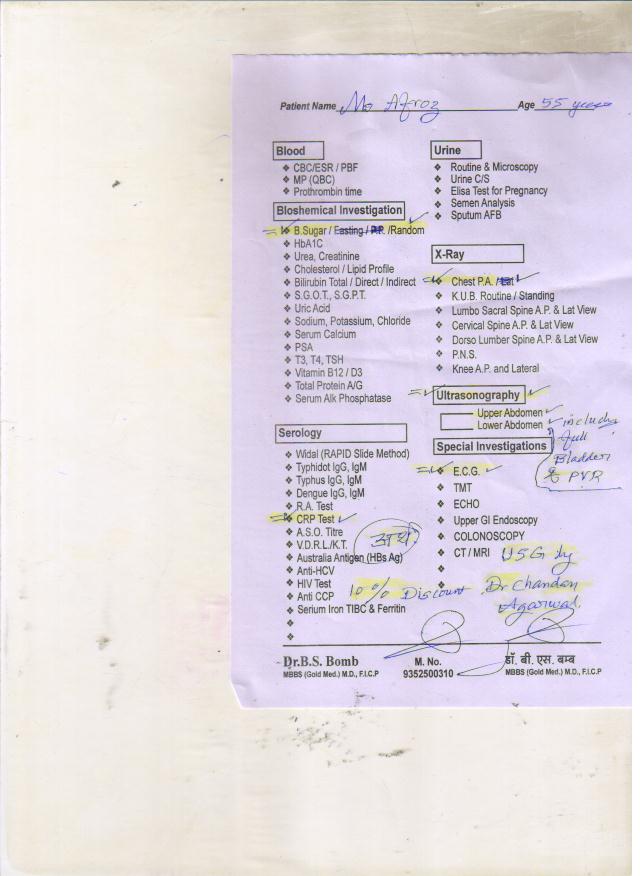 Patient Name Mo Afroz Age 55 years
Blood
❖ CBC/ESR / PBF
❖ MP (QBC)
❖ Prothrombin time
Bioshemical Investigation
❖ B.Sugar / Easting / P.P. /Random
❖ HbA1C
❖ Urea, Creatinine
❖ Cholesterol / Lipid Profile
❖ Bilirubin Total / Direct / Indirect
❖ S.G.O.T., S.G.P.T.
❖ Uric Acid
❖ Sodium, Potassium, Chloride
❖ Serum Calcium
❖ PSA
❖ T3, T4, TSH
❖ Vitamin B12 / D3
❖ Total Protein A/G
❖ Serum Alk Phosphatase
Serology
❖ Widal (RAPID Slide Method)
❖ Typhidot IgG, IgM
❖ Typhus IgG, IgM
❖ Dengue IgG, IgM
❖ R.A. Test
❖ CRP Test
❖ A.S.O. Titre
❖ V.D.R.L./K.T.
❖ Australia Antigen (HBs Ag)
❖ Anti-HCV
❖ HIV Test
❖ Anti CCP
❖ Serium Iron TIBC & Ferritin
10% Discount
Urine
❖ Routine & Microscopy
❖ Urine C/S
❖ Elisa Test for Pregnancy
❖ Semen Analysis
❖ Sputum AFB
X-Ray
❖ Chest P.A. / Lat
❖ K.U.B. Routine / Standing
❖ Lumbo Sacral Spine A.P. & Lat View
❖ Cervical Spine A.P. & Lat View
❖ Dorso Lumber Spine A.P. & Lat View
❖ P.N.S.
❖ Knee A.P. and Lateral
Ultrasonography
Upper Abdomen
Lower Abdomen
full
Bladder
PVR
Special Investigations
❖ E.C.G.
❖ TMT
❖ ECHO
❖ Upper GI Endoscopy
❖ COLONOSCOPY
❖ CT / MRI
USG by
Dr Chandan
Agarwal.
Dr.B.S. Bomb
MBBS (Gold Med.) M.D., F.I.C.P
M. No.
9352500310
डॉ. बी. एस. बम्ब
MBBS (Gold Med.) M.D., F.I.C.P